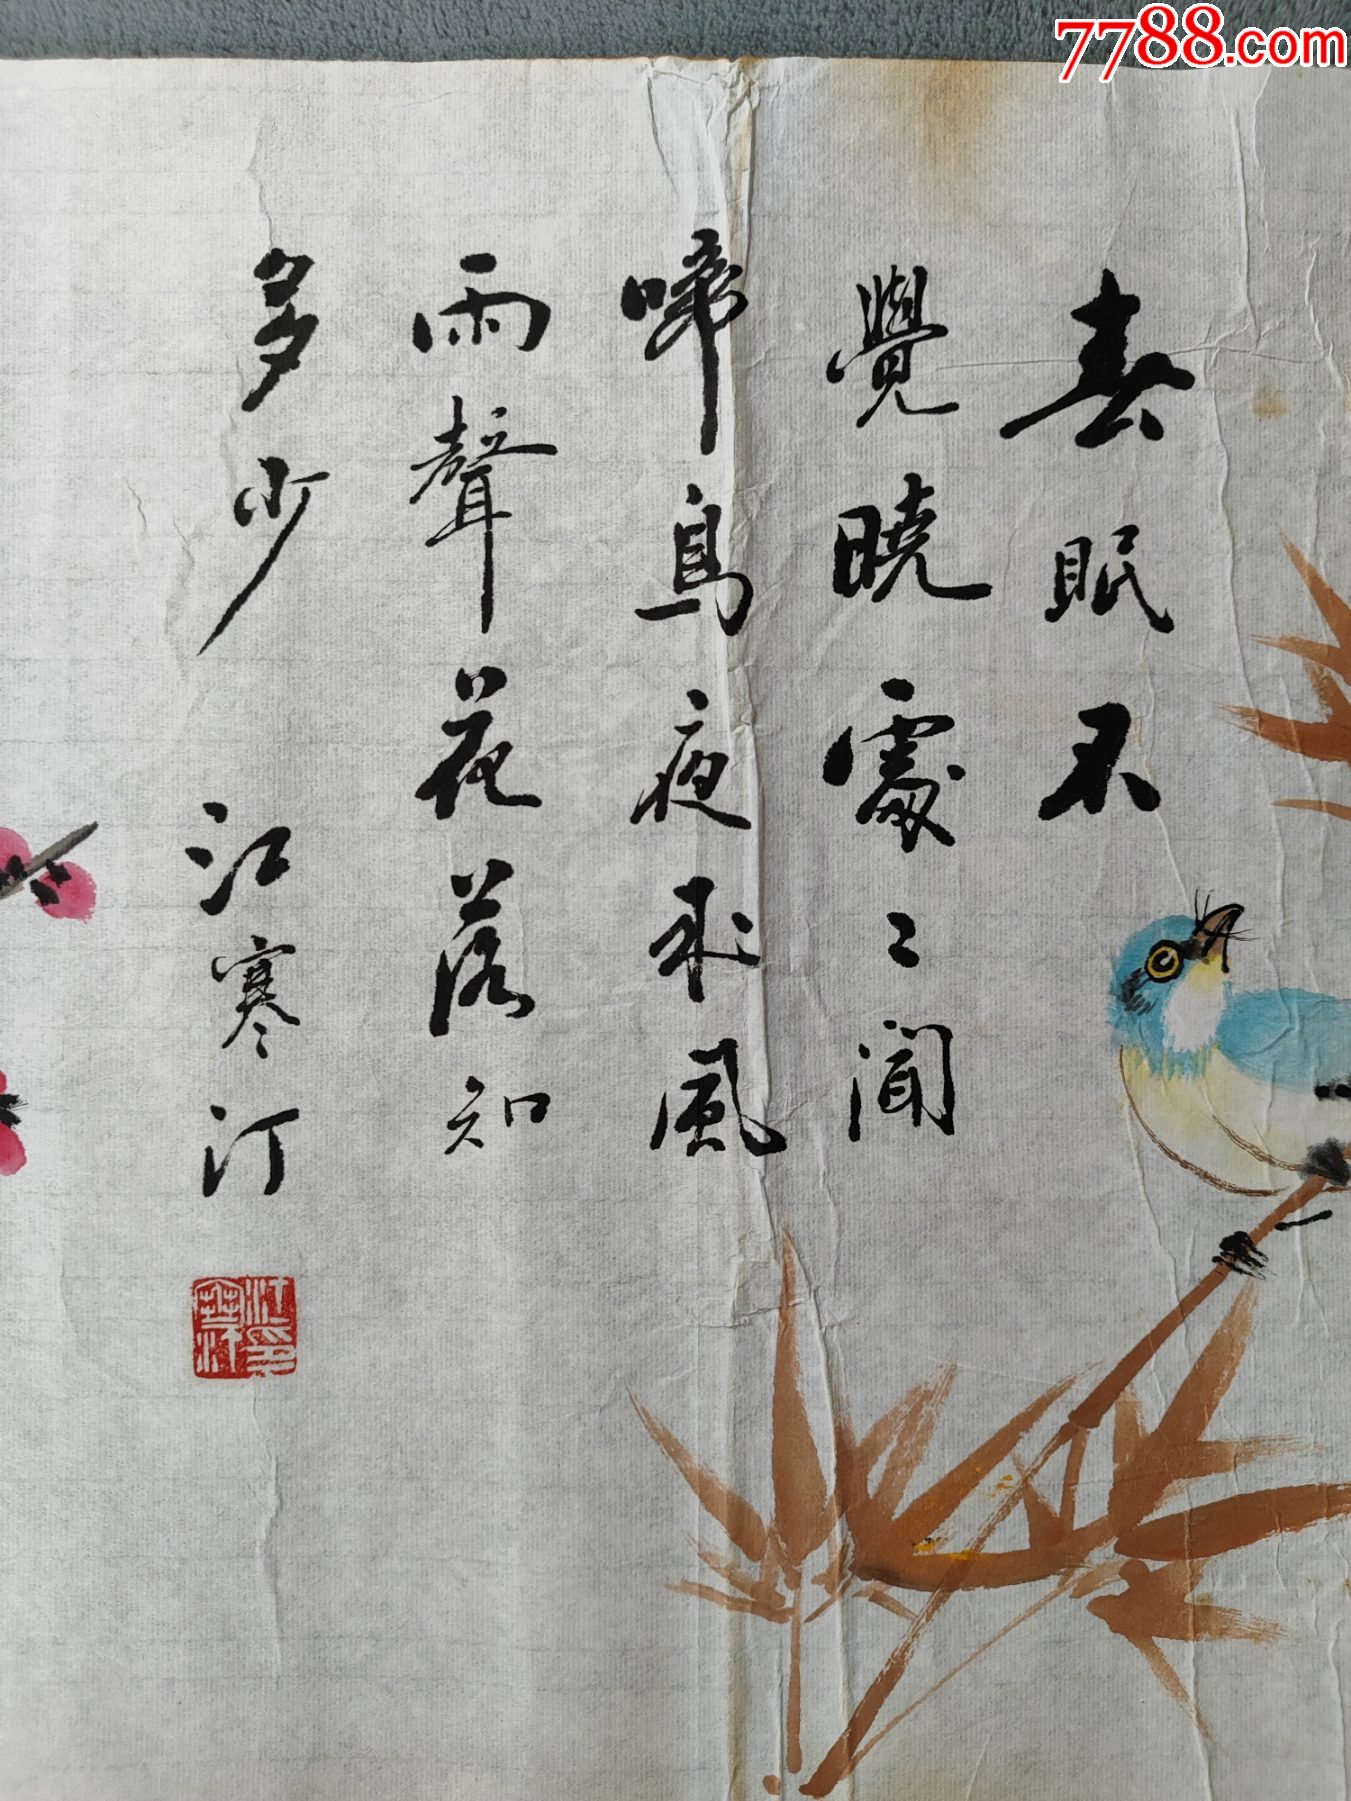 7788.com
春眠不
覺曉處〻聞
啼鳥夜來風
雨聲花落知
多少
江寒汀
江寒汀印